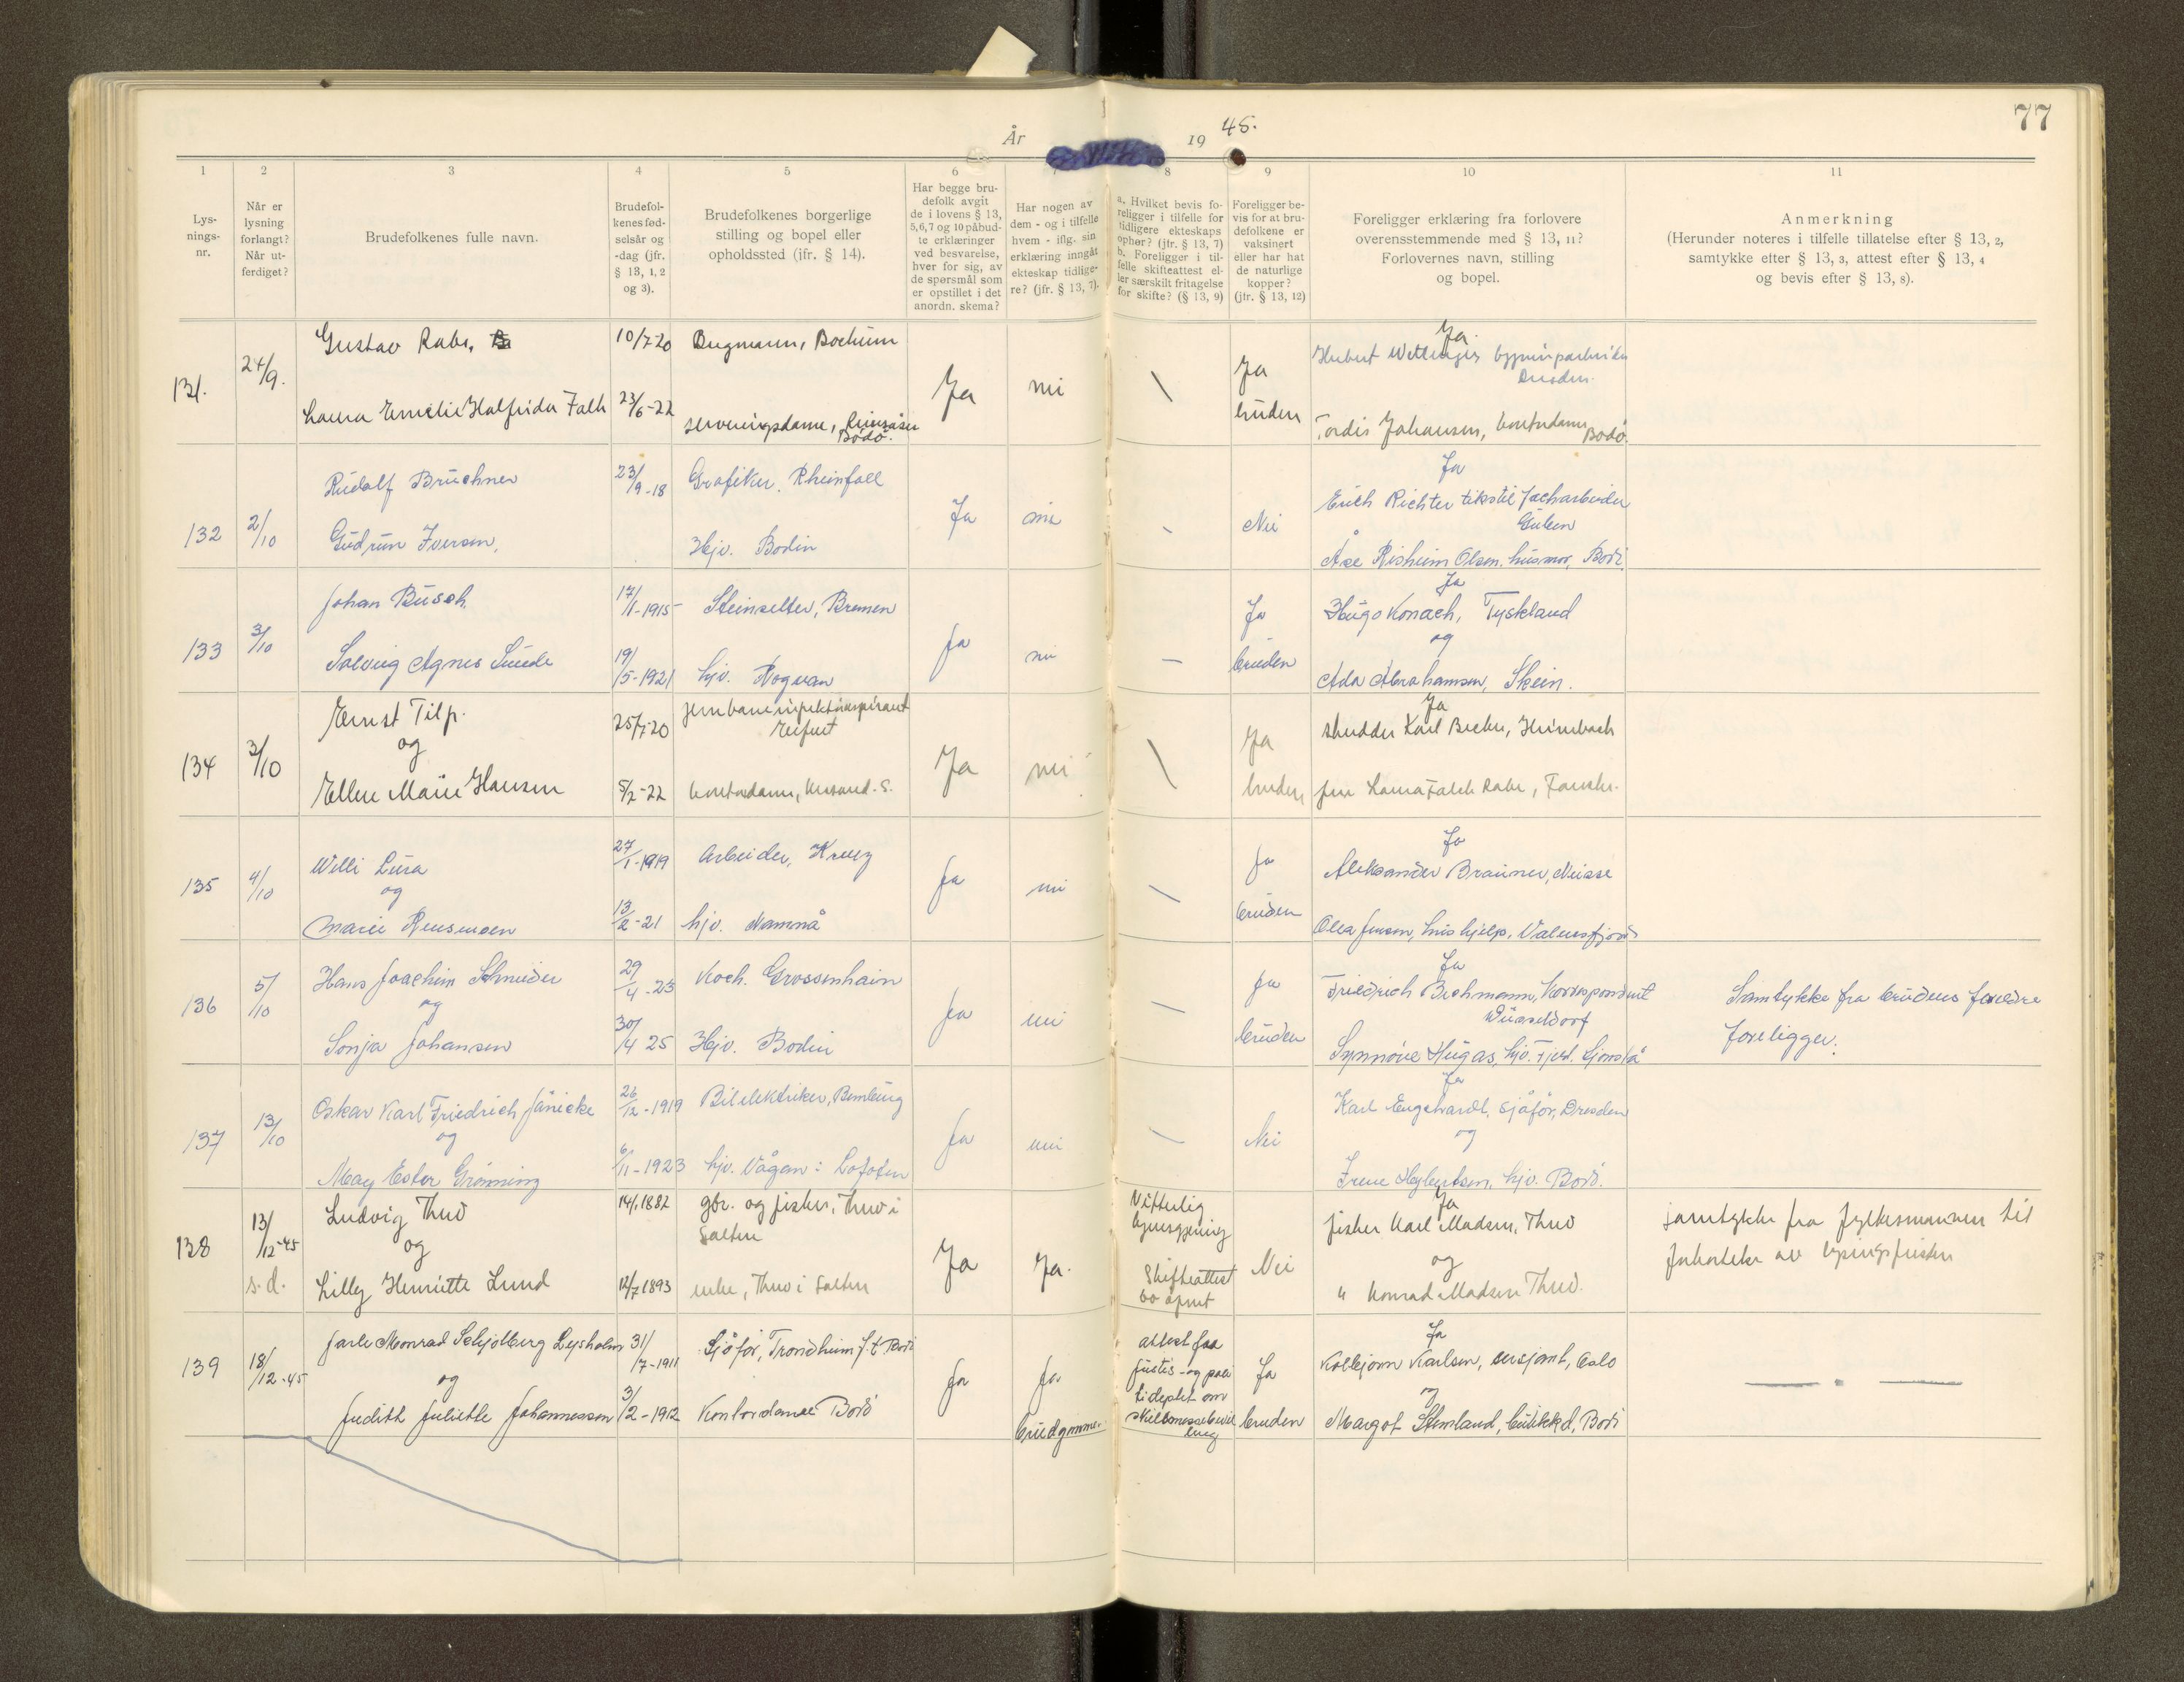 77
År 19 45.
1 2 3 4 5 6 8 9 10 11
Lysnings-nr.
Når er lysning forlangt? Når utferdiget?
Brudefolkenes fulle navn.
Brudefolkenes fødselsår og -dag (jfr. § 13, 1, 2 og 3).
Brudefolkenes borgerlige stilling og bopel eller opholdssted (jfr. § 14).
Har begge brudefolk avgit de i lovens § 13, 5,6,7 og 10 påbudte erklæringer ved besvarelse, hver for sig, av de spørsmål som er opstillet i det anordn. skema?
Har nogen av dem - og i tilfelle hvem - iflg. sin erklæring inngåt ekteskap tidligere? (jfr. § 13, 7).
a. Hvilket bevis foreligger i tilfelle for tidligere ekteskaps ophør? (jfr. § 13, 7) b. Foreligger i tilfelle skifteattest eller særskilt fritagelse for skifte? (§ 13, 9)
Foreligger bevis for at brudefolkene er vaksinert eller har hat de naturlige kopper? (jfr. § 13, 12)
Foreligger erklæring fra forlovere overensstemmende med § 13, 11? Forlovernes navn, stilling og bopel.
Anmerkning (Herunder noteres i tilfelle tillatelse efter § 13, 2, samtykke efter § 13, 3, attest efter § 13, 4 og bevis efter § 13, 8).
131. 24/9. Gustav Rabe, 10/7-20 Bochum
Laura Emelie Halfrida Falk 23/6-22 serveringsdame, Bodø.
Ja nei \ Ja bruden
Ja
Herbert
Dresden.
Tordis Johansen, kontordame Bodø.
132 2/10 Rudolf Brüchner 23/9-18 Grafiker. Rheinfall
Gudrun Iversen, Hjv. Bodin
Ja nei - Nei
Ja
Erich Richter tekstil facharbeider
Guben
Åse Risheim Olsen. husmor, Bodø.
133 3/10 Johan Busch 17/1-1915 Steinsetter, Bremen
Solveig Agnes Sunde 19/5-1921 hjv. Rognan
Ja nei - Ja bruden
Ja
Hugo Konach, Tyskland
og
Ada Abrahamsen, Skein.
134 3/10 Ernst Tilp. 25/7-20 jernbaneinspektøraspirant
Erfurt
og
Ellen Marie Hansen 5/2-22 kontordame, Krsand. S.
Ja nei \ Ja bruden
Ja
Karl Becker, Heimbach
fru Laura Falch Rabe, Fauske.
135 4/10 Willi Lusa 27/1-1919 Arbeider, Kreuz
og
Marie Rensmoen 13/2-21 hjv. Namnå
Ja nei - Ja bruden
Ja
Aleksander Brauner, Neisse
Olea Jensen, hushjelp, Valnesfjord
136 5/10 Hans Joachim Schneider 29/4-23 Koch. Grossenhain
og
Sonja Johansen 30/4 25 Hjv. Bodin
Ja nei - Ja bruden
Ja
Friedrich Bochmann, Korrespondent
Düsseldorf
Synnøve Hugas, hjv. Fjeld. Sjonstå
Samtykke fra brudens foreldre
foreligger.
137 13/10 Oskar Karl Friedrich Jänicke 26/12-1919 Bilelektriker,
og
May Ester Grønning 6/11-1923 hjv. Vågan i Lofoten
Ja nei - Nei
Ja
Karl Engehardt, sjåfør, Dresden
og
Irene hjv. Bodø.
138 13/12-45 s.d. Ludvig Thuv 14/1 1882 gbr. og fisker, Thuv i
Salten
og
Lilly Henriette Lund 12/7 1893 enke, Thuv i Salten
Ja Ja.
Vitterlig
Skifteattest
bo åpnet
Nei
Ja
fisker Karl Madsen, Thuv
og
" Konrad Madsen Thuv.
samtykke fra fylkesmannen til
forkortelse av lysingsfristen
139 18/12-45 Jarle Monrad Schjelberg Lysholm 31/7-1911 Sjåfør, Trondheim f.t. Bodø
og
Judith Juliette Johannessen 3/2-1912 Kontordame Bodø
Ja Ja brudgommen
attest fra
justis- og poli
tidept om
skilsmissebevil
ling
Ja bruden
Ja
Kolbjørn Karlsen, sersjant, Oslo
og
Margot Stemland, butikkd, Bodø